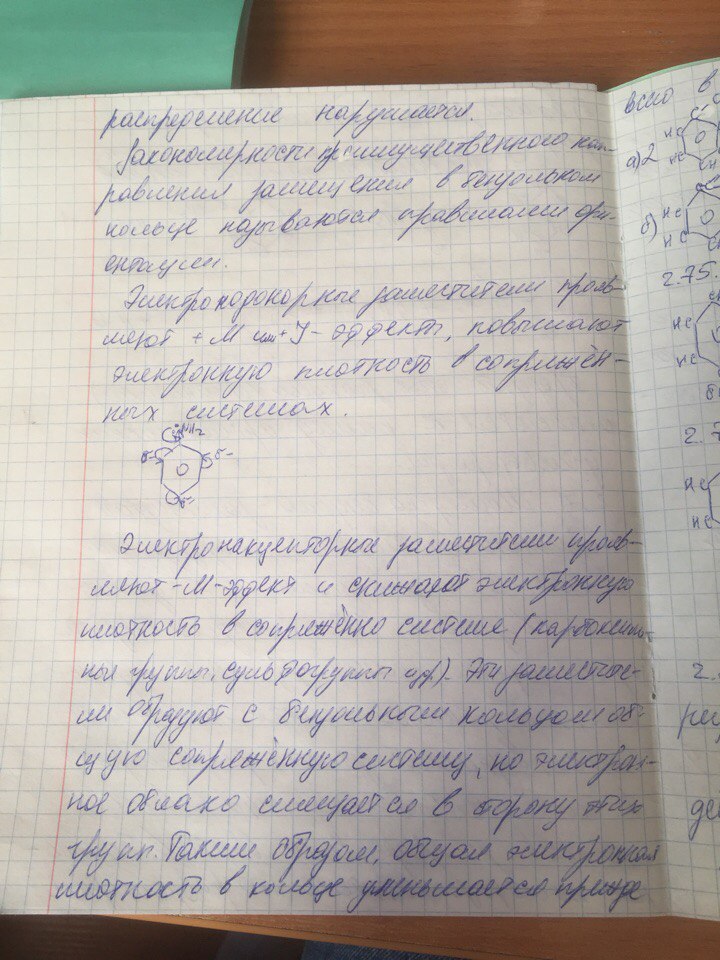 распределение нарушается.
Закономерности преимущественного нап-
равления замещения в бензольном
кольце называются правилами ори-
ентации.
Электронодонорные заместители прояв-
ляют +М или +J-эффекты, повышают
электронную плотность в сопряжён-
ных системах.
NH2
δ- δ-
δ-
Электронакцепторные заместители прояв-
ляют -М-эффект и снижают электронную
плотность в сопряжённо системе (карбоксиль-
ные группы, сульфогруппы и др.). Эти заместите-
ли образуют с бензольным кольцом об-
щую сопряжённую систему, но электрон-
ное облако смещается в сторону этих
групп. Таким образом, общая электронная
плотность в кольце уменьшается прежде
всего в
а) 2
HC
HC
б)
HC
HC
2.75.
HC
HC
2.7
HC
HC
2.